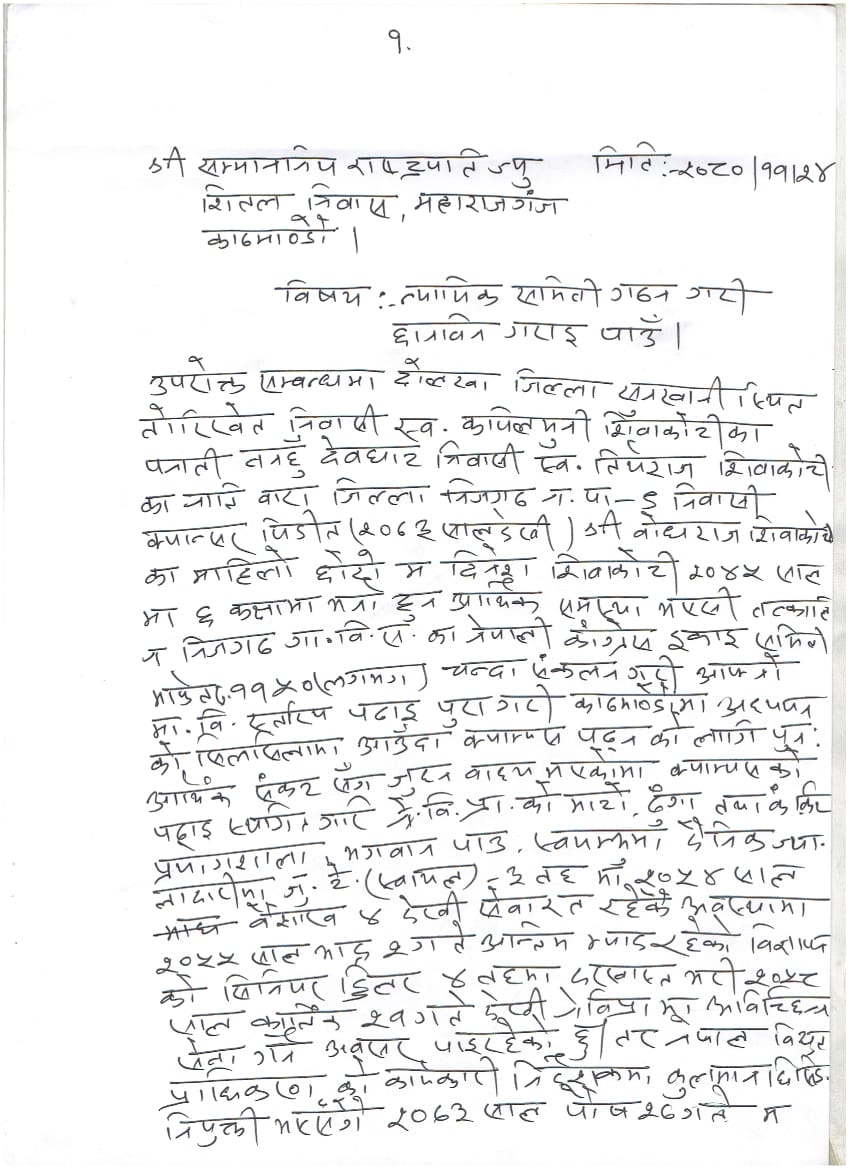 १.
श्री सम्माननिय राष्ट्रपति ज्यु मिति:-२०८०/११/२४
शितल निवास, महाराजगंज
काठमाण्डौं ।
विषय :- न्यायिक समिती गठन गरी
छानविन गराइ पाउँ ।
उपरोक्त सम्बन्धमा दोलखा जिल्ला सुनखानी स्थित
तोरिखेत निवासी स्व. कपिलमुनी शिवाकोटीका
पनाती तनहुँ देवघाट निवासी स्व. शिवाकोटी
का नाति बारा जिल्ला निजगढ न.पा-६ निवासी
क्यान्सर पिडीत (२०६३ सालदेखी) श्री बोधराज शिवाकोटी
का माहिलो छोरो म दिनेश शिवाकोटी २०४५ साल
मा ६ कक्षामा भर्ना हुन आर्थिक समस्या भएसी तत्कालि
न निजगढ गा.वि.स. का नेपाली काँग्रेस इकाइ समिती
मार्फत रु.११५०(लगभग) चन्दा संकलन गरी आफ्नो
मा. वि. स्तरिय पढाइ पुरा गरी काठमाण्डौंमा अध्ययन
को सिलसिलामा आउँदा क्याम्पस पढ्न को लागि पुन:
आर्थिक संकट सँग जुध्न वाध्य भएकोमा क्याम्पस को
पढाइ स्थगित गरि ने.वि.प्रा. को माटो, ढुंगा तथा कंक्रिट
प्रयोगशाला, भगवान पाउ, स्वयम्भुमा दैनिक ज्या-
लादारीमा जु. टे. (स्वायल) -३ तह मा २०५४ साल
वैशाख ४ देखी सेवारत रहेकै अवस्थामा
२०५५ साल भाद्र २ गते अन्तिम म्याद रहेको विज्ञापन
को सिनियर ४ तहमा दरखास्त भरी २०५८
साल कार्तिक २१ गते देखी ने.वि.प्रा मा अविच्छिन्न
सेवा गर्ने अवसर पाइरहेको छु। तर नेपाल विद्युत
प्राधिकरण को कार्यकारी निर्देशकमा कुलमान घिसिङ-
नियुक्ती भएसंगै २०७३ साल पौष २८ गते म